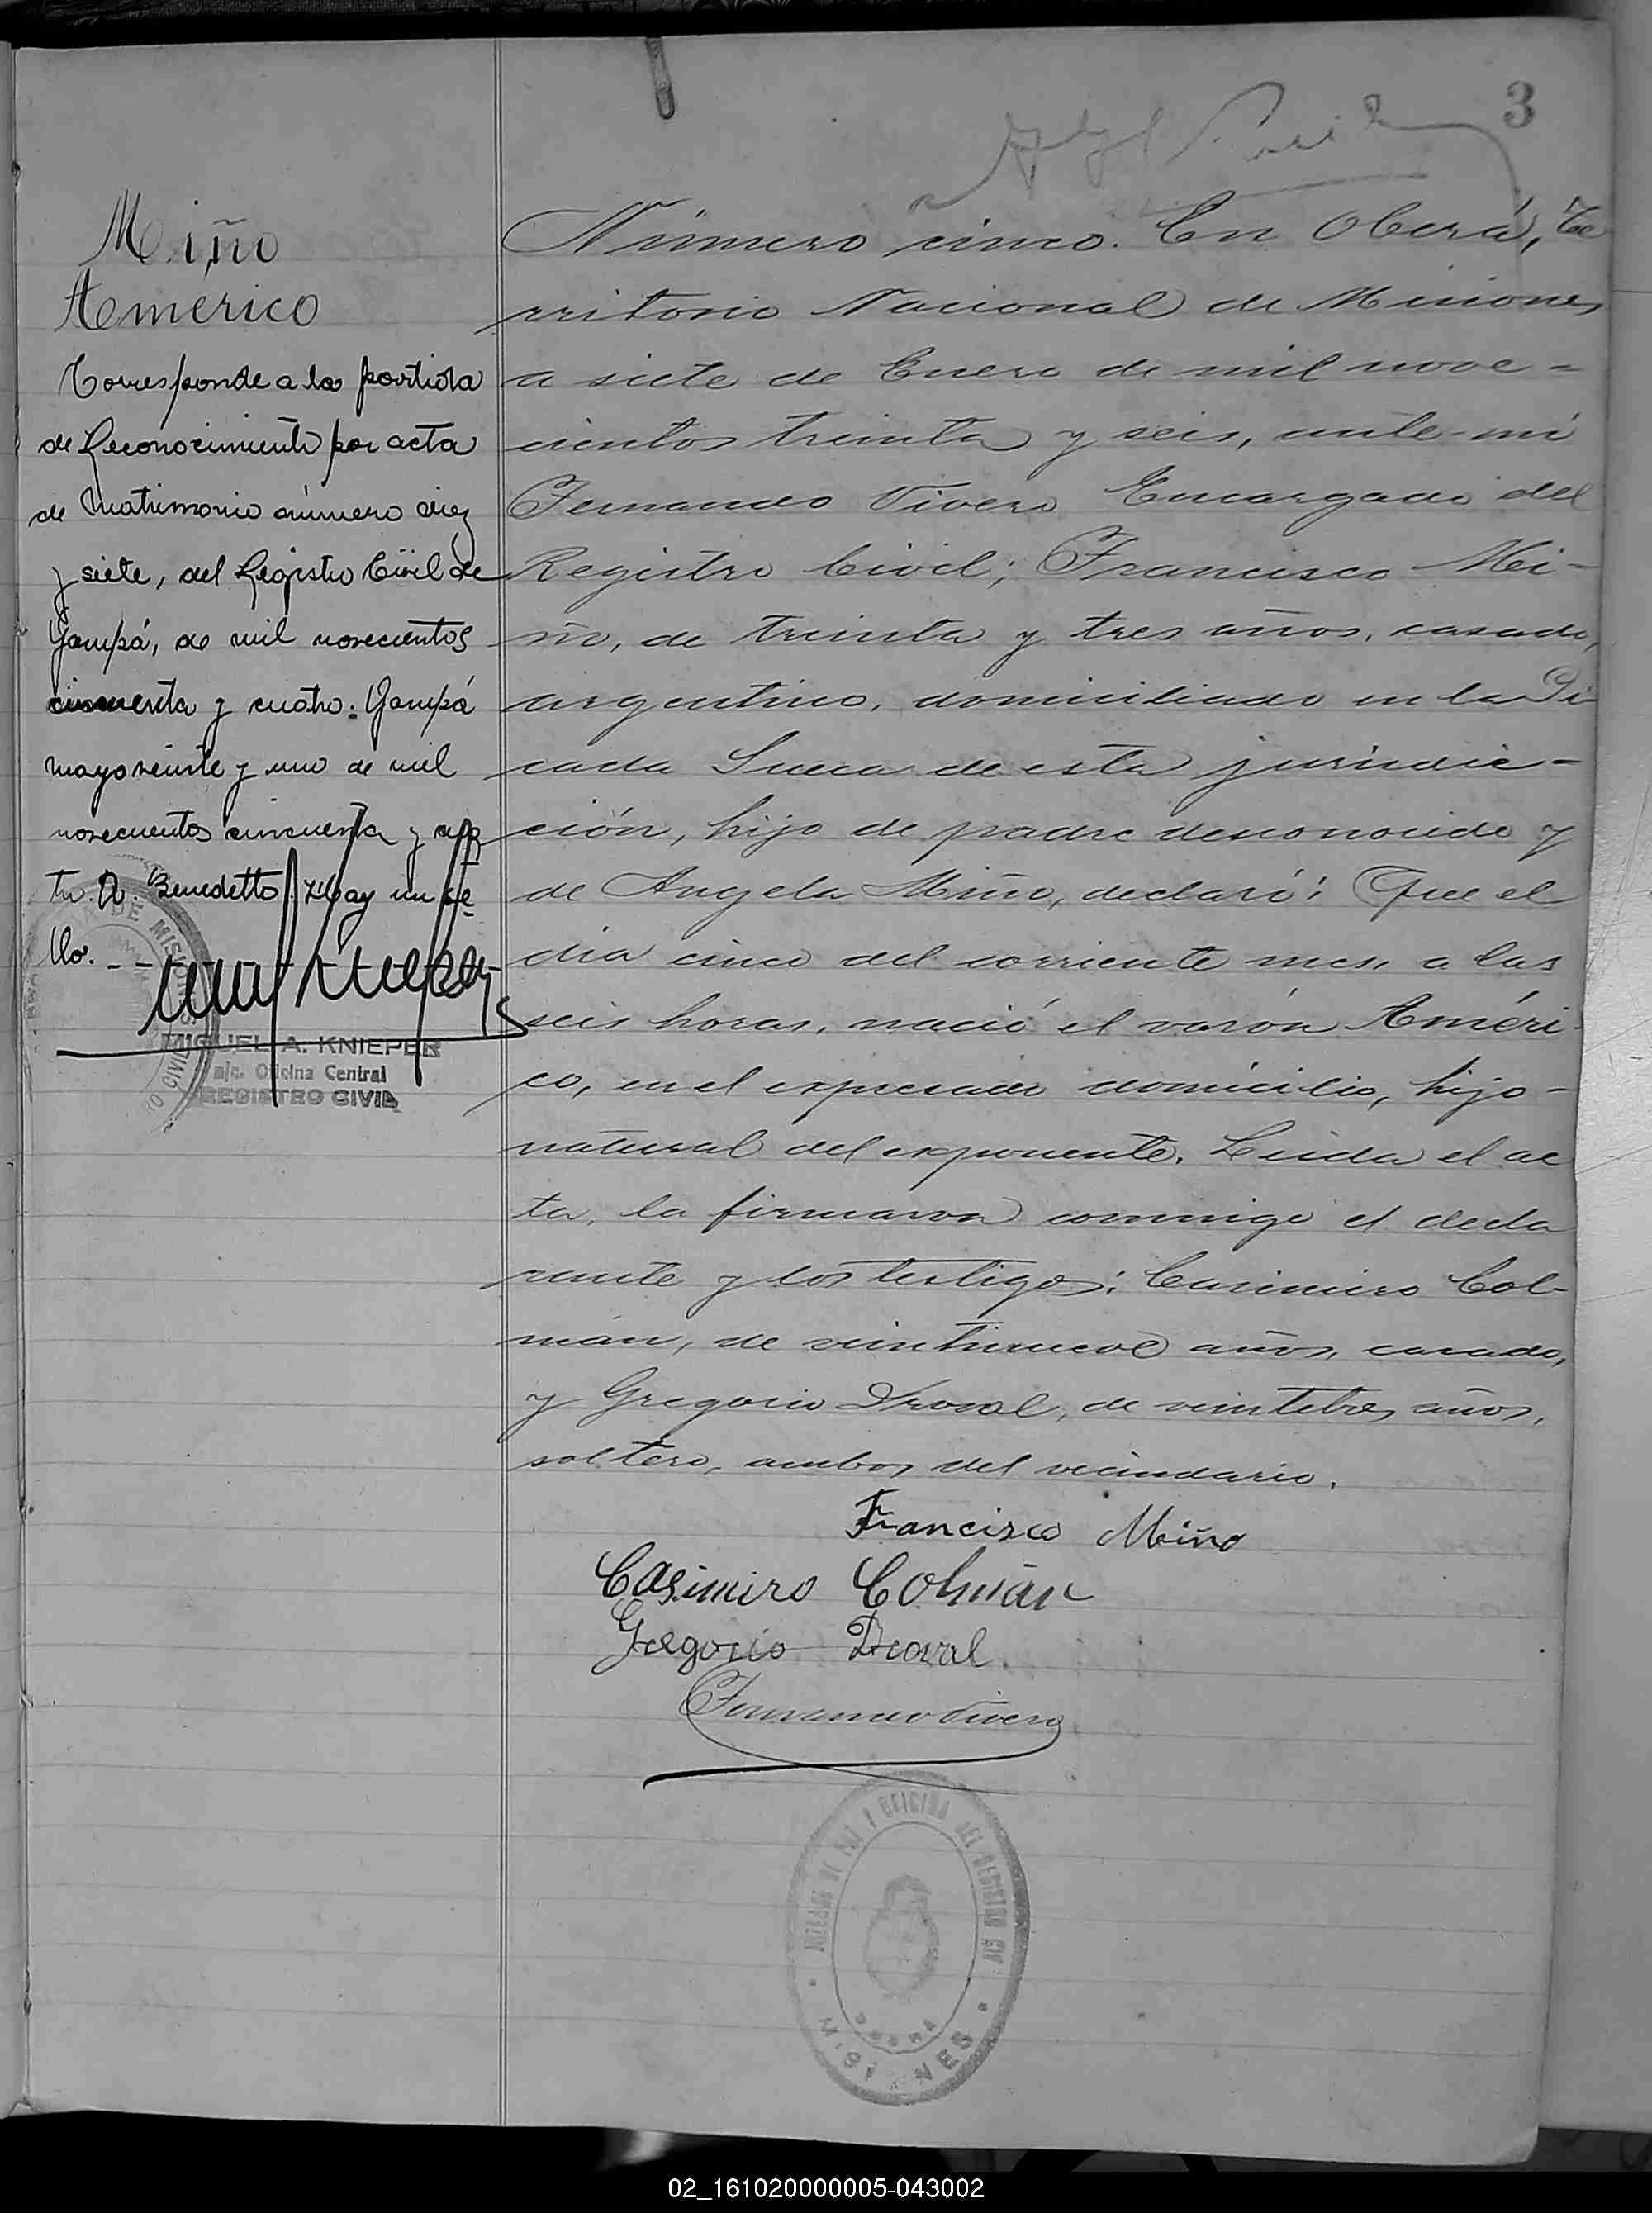 3
Miño
Américo
Corresponde a la partida
de Reconocimiento por acta
de Matrimonio número diez
y siete, del Registro Civil de
Yampá, de mil novecientos
cincuenta y cuatro. Yampá
mayo veinte y uno de mil
novecientos cincuenta y cua
tro. Benedetto. Hay un se
llo.
MIGUEL A. KNIEPER
a/c. Oficina Central
REGISTRO CIVIL
Número cinco. En Oberá, Te
rritorio Nacional de Misiones
a siete de Enero de mil nove-
cientos treinta y seis, ante mí
Fernando Vivero Encargado del
Registro Civil; Francisco Mi-
ño, de treinta y tres años, casado,
argentino, domiciliado en la Pi
cada Sueca de esta jurisdic-
ción, hijo de padre desconocido y
de Angela Miño, declaró: Que el
día cinco del corriente mes, a las
seis horas, nació el varón Améri-
co, en el expresado domicilio, hijo
natural del exponente. Leida el ac
ta, la firmaron conmigo el decla
rante y los testigos: Casimiro Col-
mán, de veintinueve años, casado,
y Gregorio Droval, de veintitres años,
soltero, ambos del vecindario.
Francisco Miño
Casimiro Colmán
Gregorio Droval
Fernando Vivero
JUZGADO DE PAZ Y OFICINA DEL REGISTRO CIV
OBERA
MISIONES
02_161020000005-043002